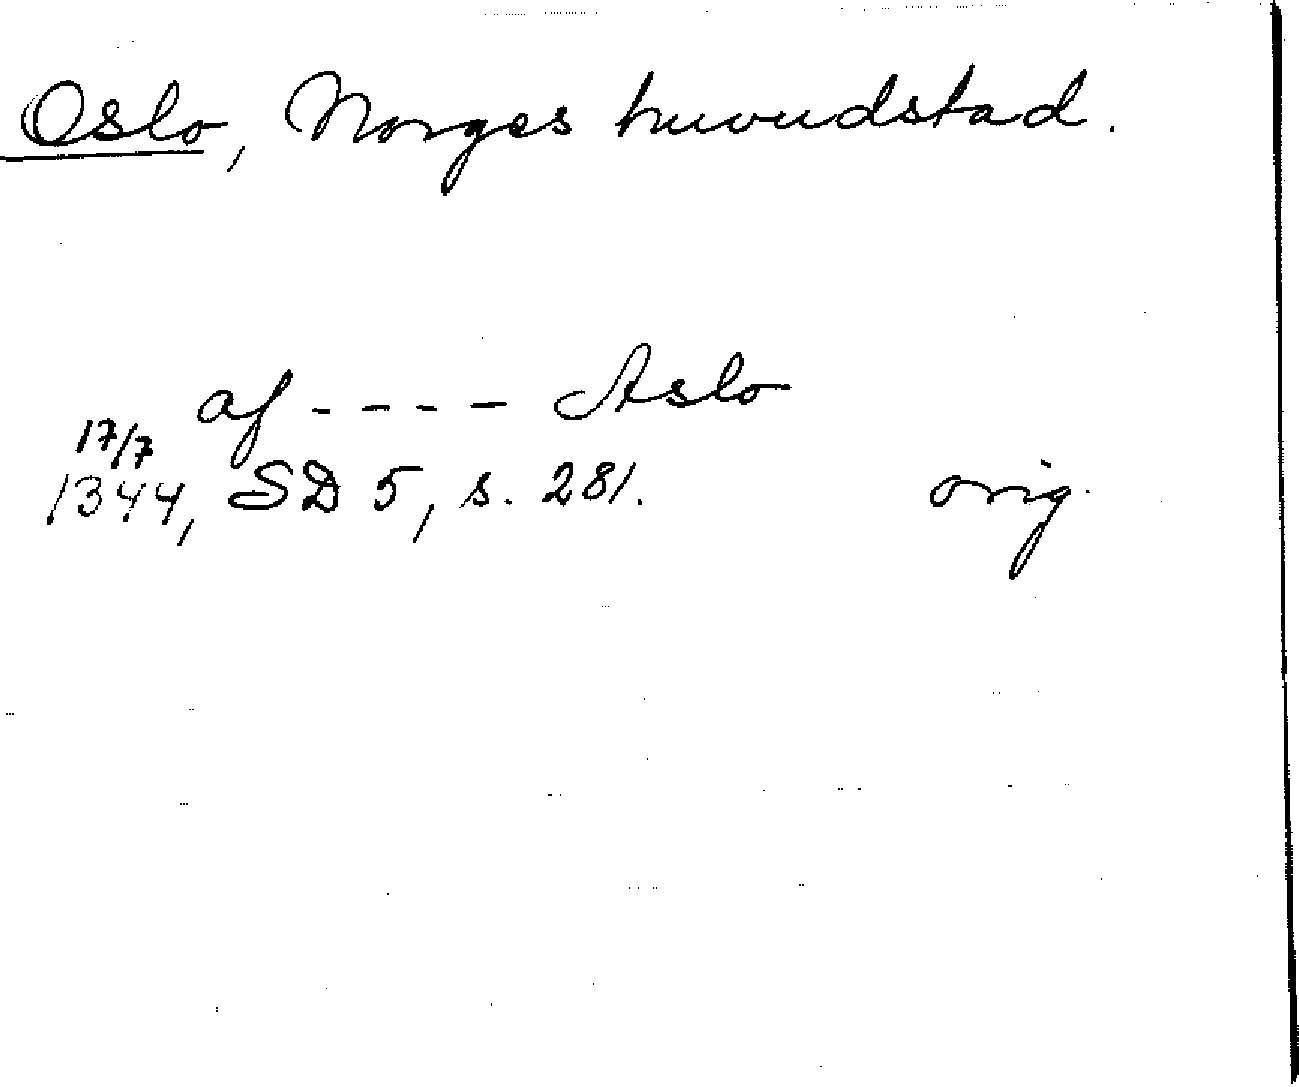 Oslo, Norges huvudstad.
af - - - - Aslo
17/7
1344, SD 5, s. 281. orig.